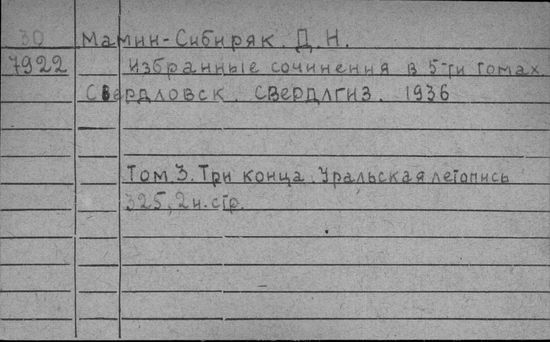 30 Мамин-Сибиряк. Д. Н.
7922 Избранные сочинения в 5-ти томах
Свердловск. Свердлгиз. 1936
Том 3. Три конца. Уральская летопись
325, 2 н. стр.